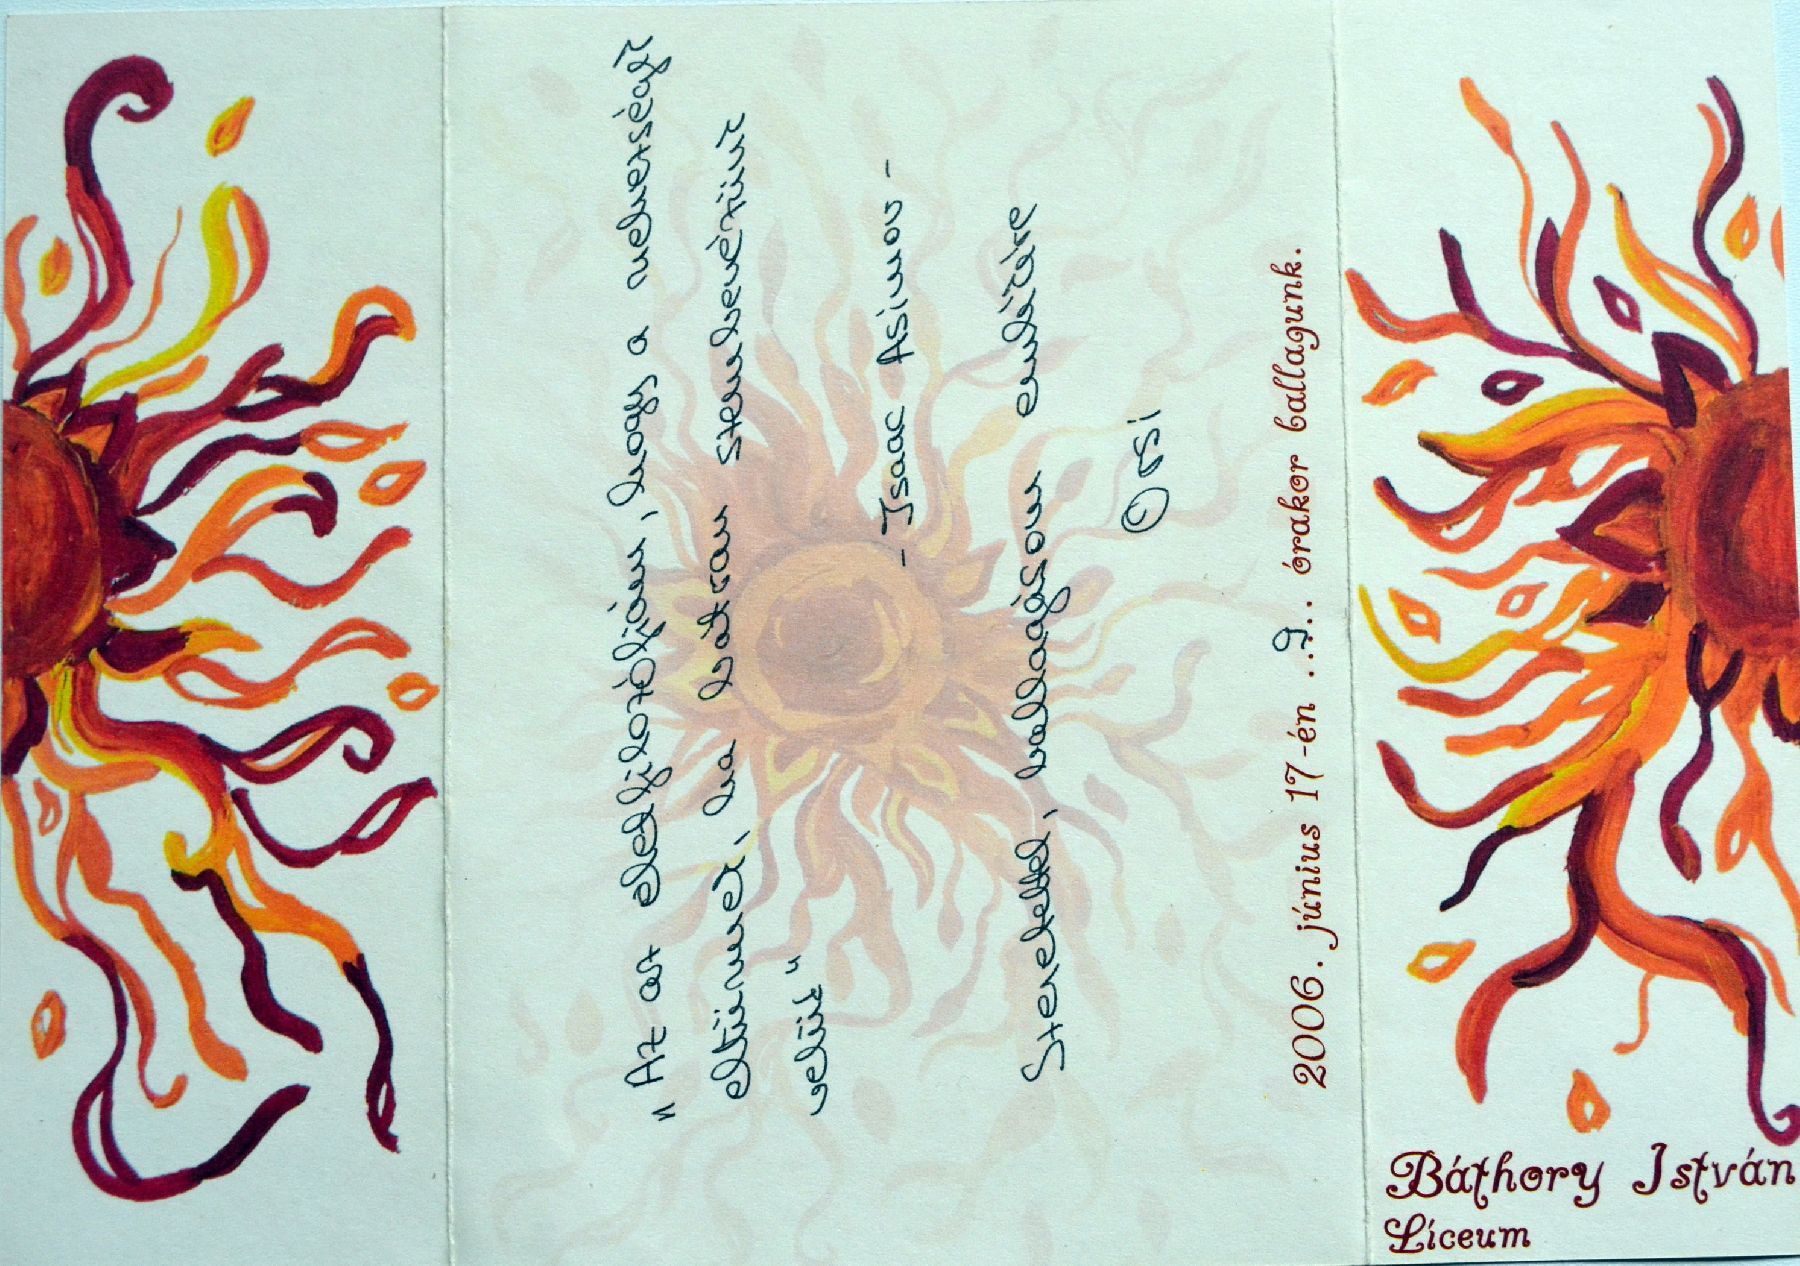 " Az azt elképzelőzjön, hogy a nehézségek
eltűnnek, ha bátran szembenézünk
velük"
- Isaac Asimov -
Szeretettel, ballagásom emlékére
Orsi
2006. június 17-én ...9... órakor ballagunk.
Báthory István
Líceum